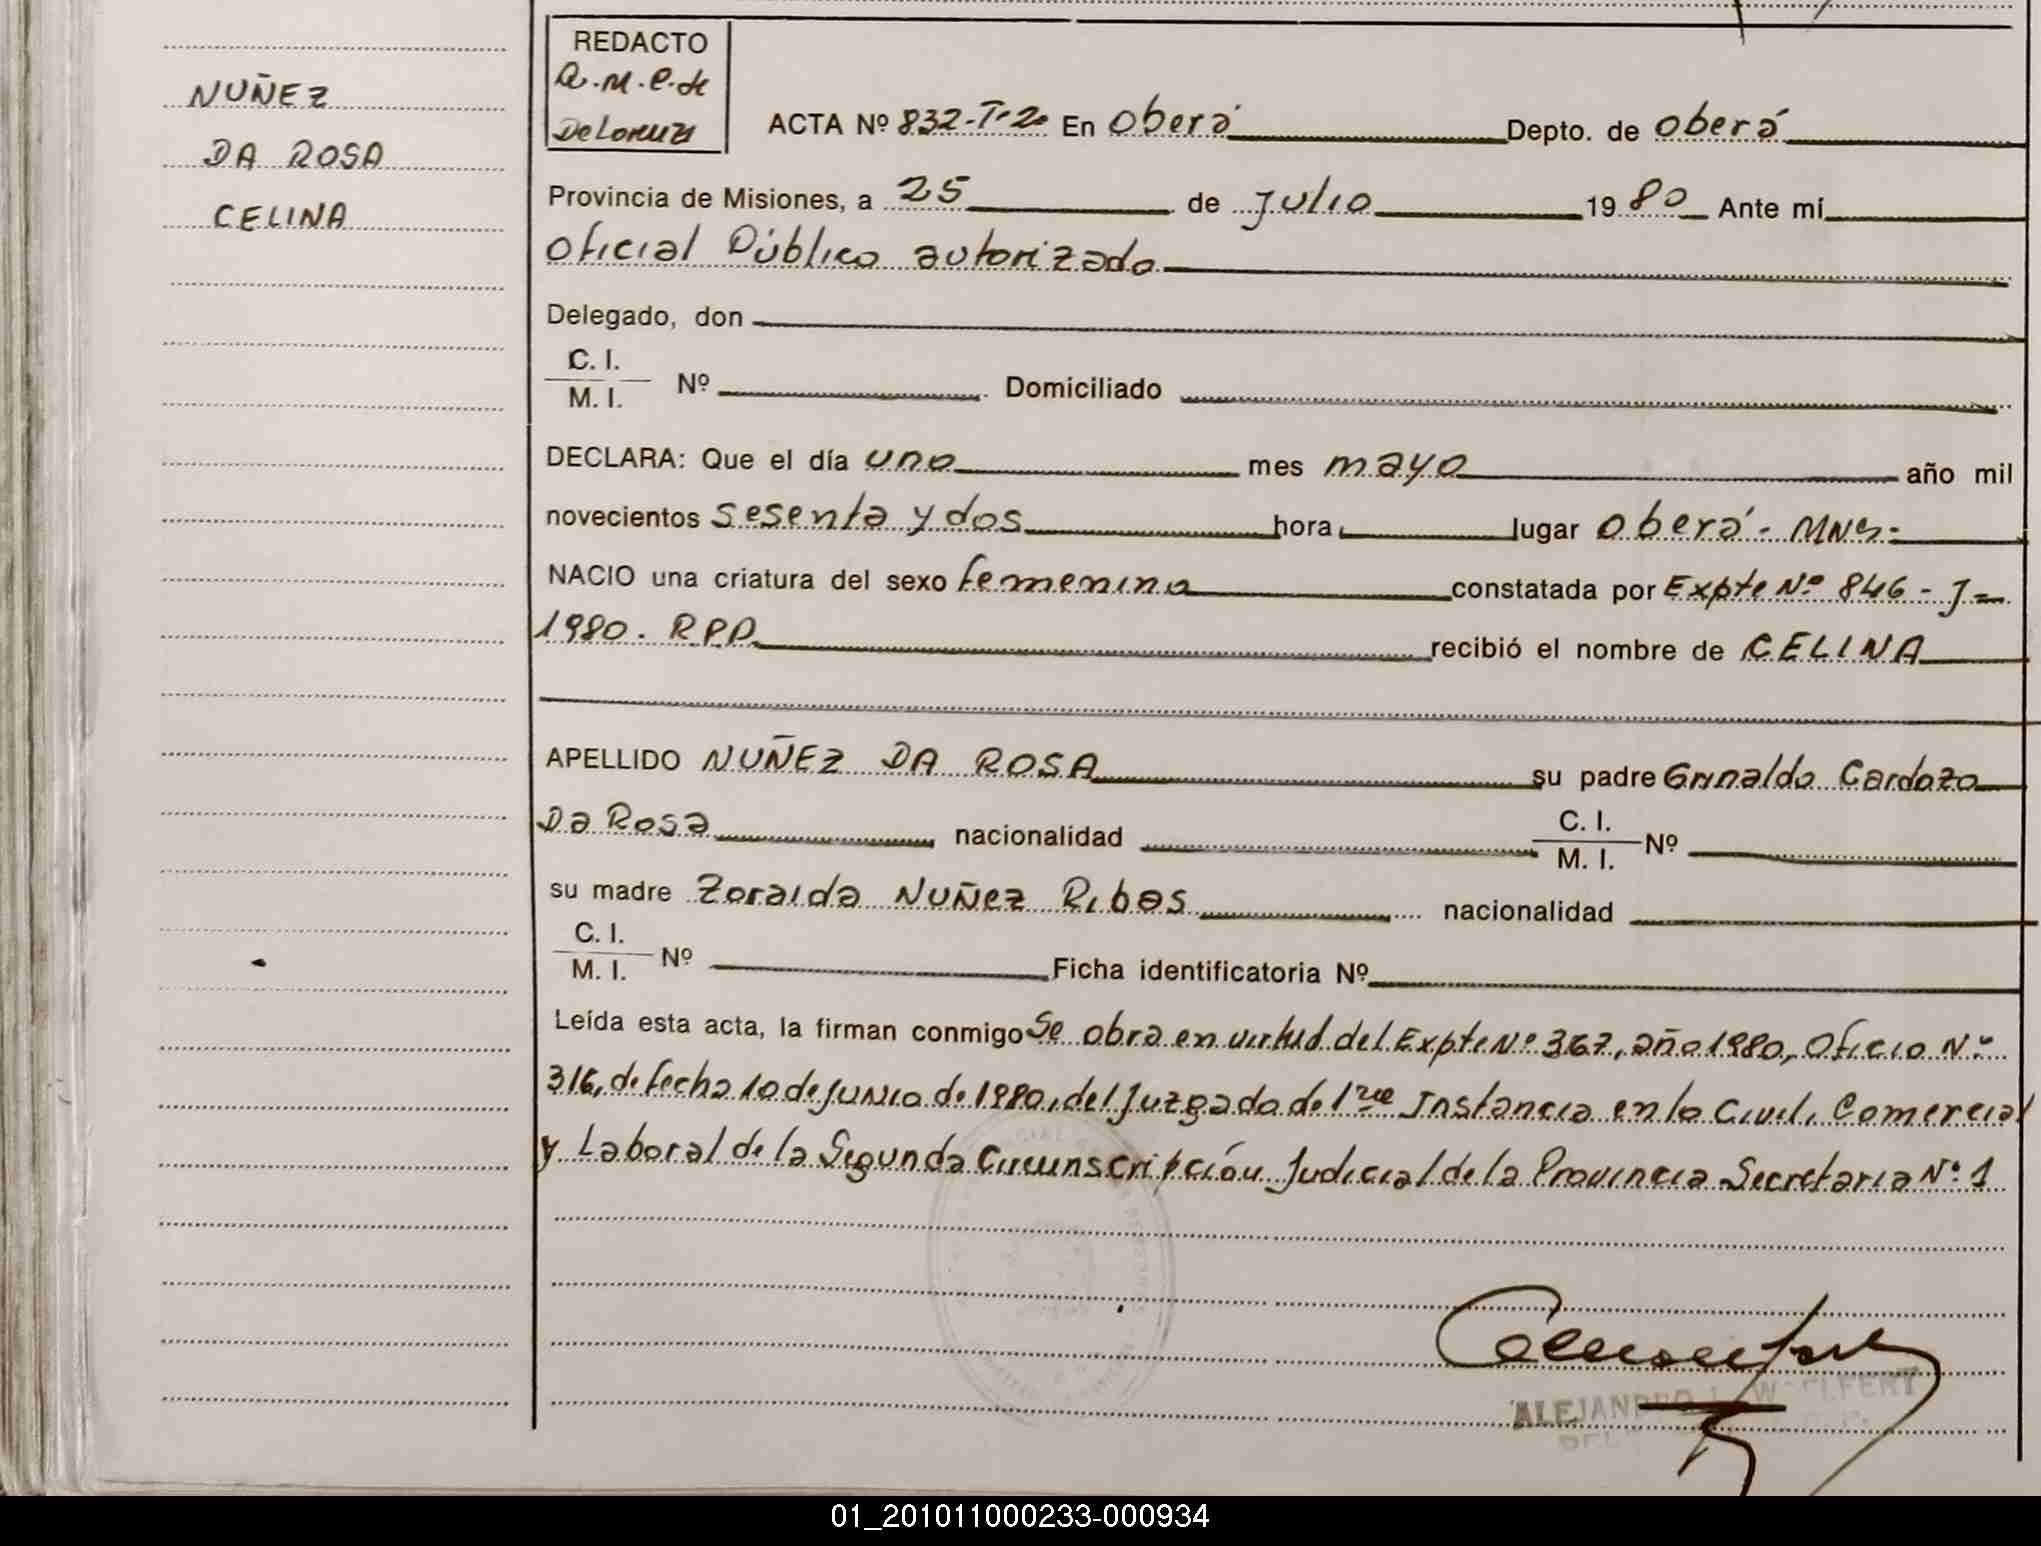 NUÑEZ
DA ROSA
CELINA
REDACTO
De Lorenzi
ACTA Nº 832-T-2º En Oberá Depto. de Oberá
Provincia de Misiones, a 25 de Julio 1980 Ante mí
Oficial Público autorizado
Delegado, don
C. I.
M. I. Nº Domiciliado
DECLARA: Que el día uno mes mayo año mil
novecientos sesenta y dos hora lugar Oberá - MNS -
NACIO una criatura del sexo femenino constatada por Expte Nº 846 - J -
1980. RPP recibió el nombre de CELINA
APELLIDO NUÑEZ DA ROSA su padre Grinaldo Cardozo
Da Rosa nacionalidad C. I.
M. I. Nº
su madre Zoraida Nuñez Ribas nacionalidad
C. I.
M. I. Nº Ficha identificatoria Nº
Leída esta acta, la firman conmigo Se obra en virtud del Expte Nº 367, año 1980, Oficio Nº
316, de fecha 10 de Junio de 1980, del Juzgado de 1ra Instancia en lo Civil, Comercial
y Laboral de la Segunda Circunscripción Judicial de la Provincia Secretaria Nº 1
ALEJANDRO
01_201011000233-000934